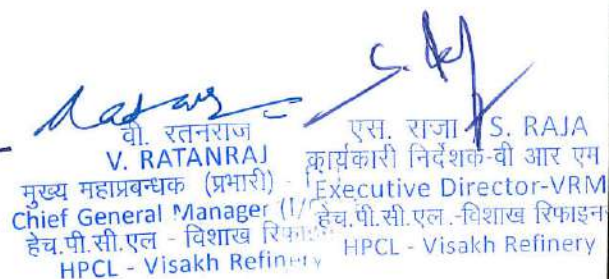 वी. रतनराज
V. RATANRAJ
मुख्य महाप्रबन्धक (प्रभारी) -
Chief General Manager (I/
हेच.पी.सी.एल - विशाख
HPCL - Visakh Refinery
एस. राजा / S. RAJA
कार्यकारी निर्देशक-वी आर एम
Executive Director-VRM
हेच.पी.सी.एल.-विशाख रिफाइन
HPCL - Visakh Refinery